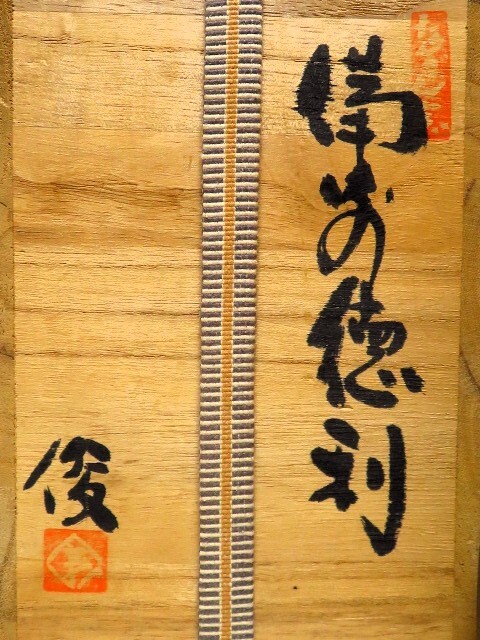 備前徳利
俊